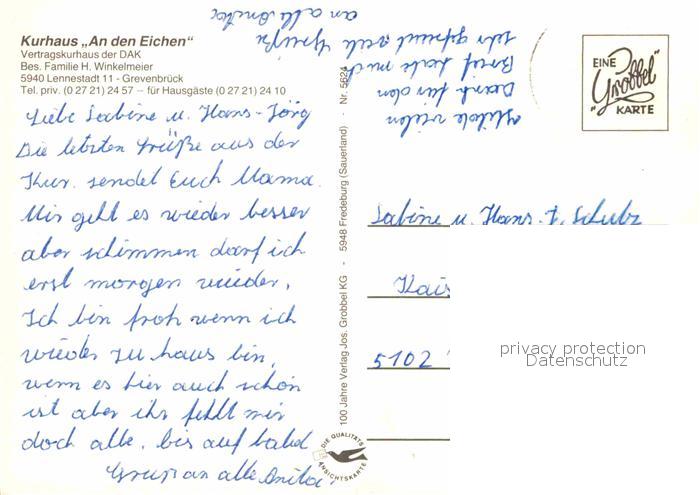 Kurhaus „An den Eichen“
Vertragskurhaus der DAK
Bes. Familie H. Winkelmeier
5940 Lennestadt 11 - Grevenbrück
Tel. priv. (0 27 21) 24 57 – für Hausgäste (0 27 21) 24 10
Liebe Sabine u. Hans-Jörg
Die letzten Grüße aus der
Kur. sendet Euch Mama.
Mir geht es wieder besser
aber schimmen darf ich
erst morgen wieder.
Ich bin froh wenn ich
wieder zu haus bin,
wenn es hier auch schön
ist aber ihr fehlt mir
doch alle. bis auf bald
Gruß an alle Anita.
vielen
Dank für den
Brief habe mich
sehr gefreut viele Grüße
an alle Anita
100 Jahre Verlag Jos. Grobbel KG - 5948 Fredeburg (Sauerland) - Nr. 5624
DIE QUALITÄTS
ANSICHTSKARTE
EINE
„Grobbel“
KARTE
Sabine u. Hans. J. Schulz
Kais
5102
privacy protection
Datenschutz